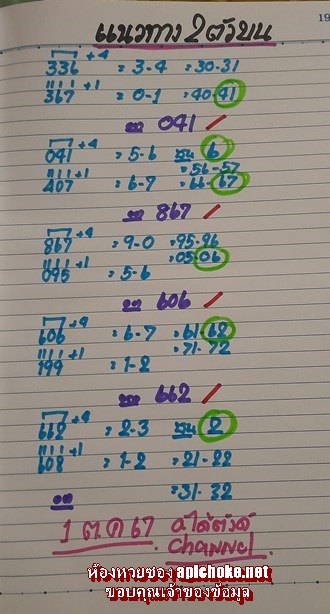 19
แนวทาง 2 ตัวบน
336 +4 = 3-4 = 30-31
367 +1 = 0-1 = 40-41
ออก 041 /
041 +4 = 5-6 บน 6
= 56-57
407 +1 = 6-7 = 66-67
ออก 867 /
867 +4 = 9-0 = 95-96
= 05-06
095 +1 = 5-6
ออก 606 /
606 +4 = 6-7 = 61-62
= 71-72
199 +1 = 1-2
ออก 662 /
662 +4 = 2-3 บน 2
608 +1 = 1-2 = 21-22
= 31-32
1 ต ค 67
channel
ห้องหวยซอง apichoke.net
ขอบคุณเจ้าของข้อมูล